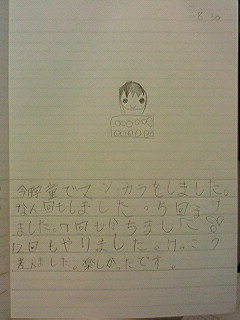 でマンカラをしました。
なん回もしました。5回まけ
ました。7回もかちました
12回もやりました。けっこう
考えました。楽しかったです。